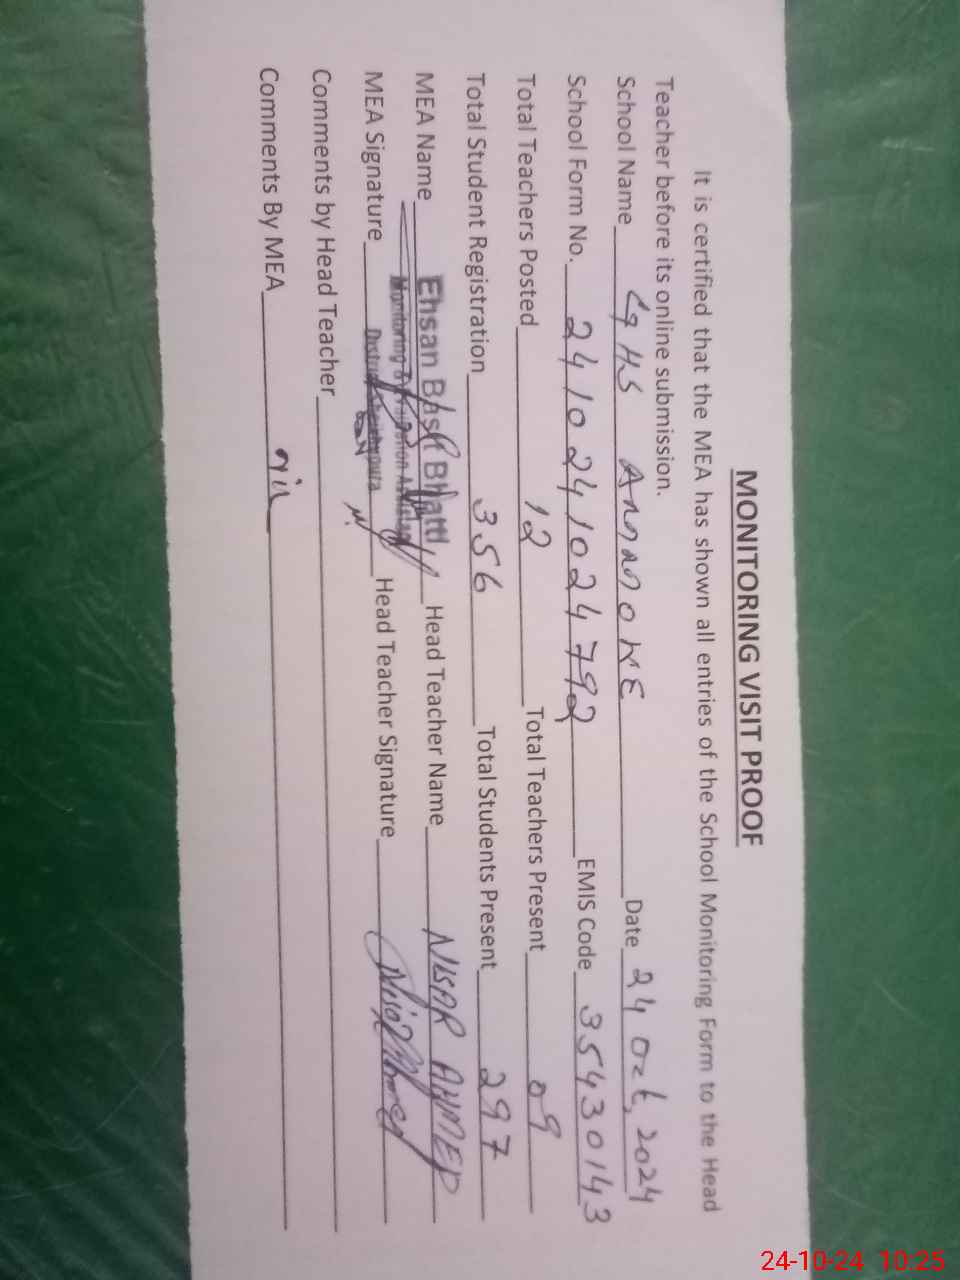 MONITORING VISIT PROOF
It is certified that the MEA has shown all entries of the School Monitoring Form to the Head
Teacher before its online submission.
School Name GHS Date 24 Oct, 2024
School Form No. 2410241024792 EMIS Code 35430143
Total Teachers Posted 12 Total Teachers Present 09
Total Student Registration 356 Total Students Present 297
MEA Name Ehsan Bhatti Head Teacher Name NISAR AHMED
Monitoring & Evaluation Assistant
MEA Signature District Sheikhupura Head Teacher Signature Nisar Ahmed
Comments by Head Teacher
Comments By MEA nil
24-10-24 10:25